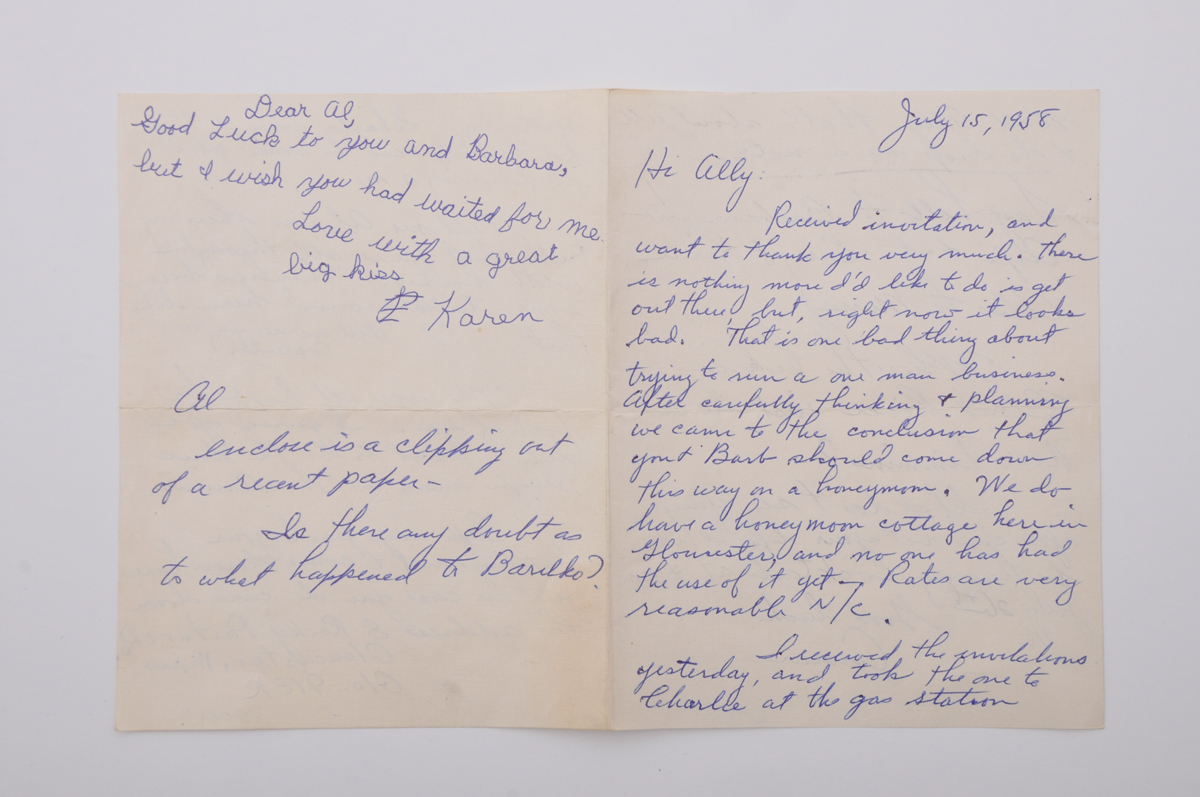 Dear Al,
Good Luck to you and Barbara,
but I wish you had waited for me.
Love with a great
big kiss
Karen
Al
enclose is a clipping out
of a recent paper-
Is there any doubt as
to what happened to Barilko?
July 15, 1958
Hi Ally:
Received invitation, and
want to thank you very much. There
is nothing more I'd like to do is get
out there, but, right now it looks
bad. That is one bad thing about
trying to run a one man business.
After carefully thinking & planning
we came to the conclusion that
you & Barb should come down
this way on a honeymoon. We do
have a honeymoon cottage here in
Gloucester, and no one has had
the use of it yet - Rates are very
reasonable N/C.
I received the invitations
yesterday, and took the one to
Charlie at the gas station